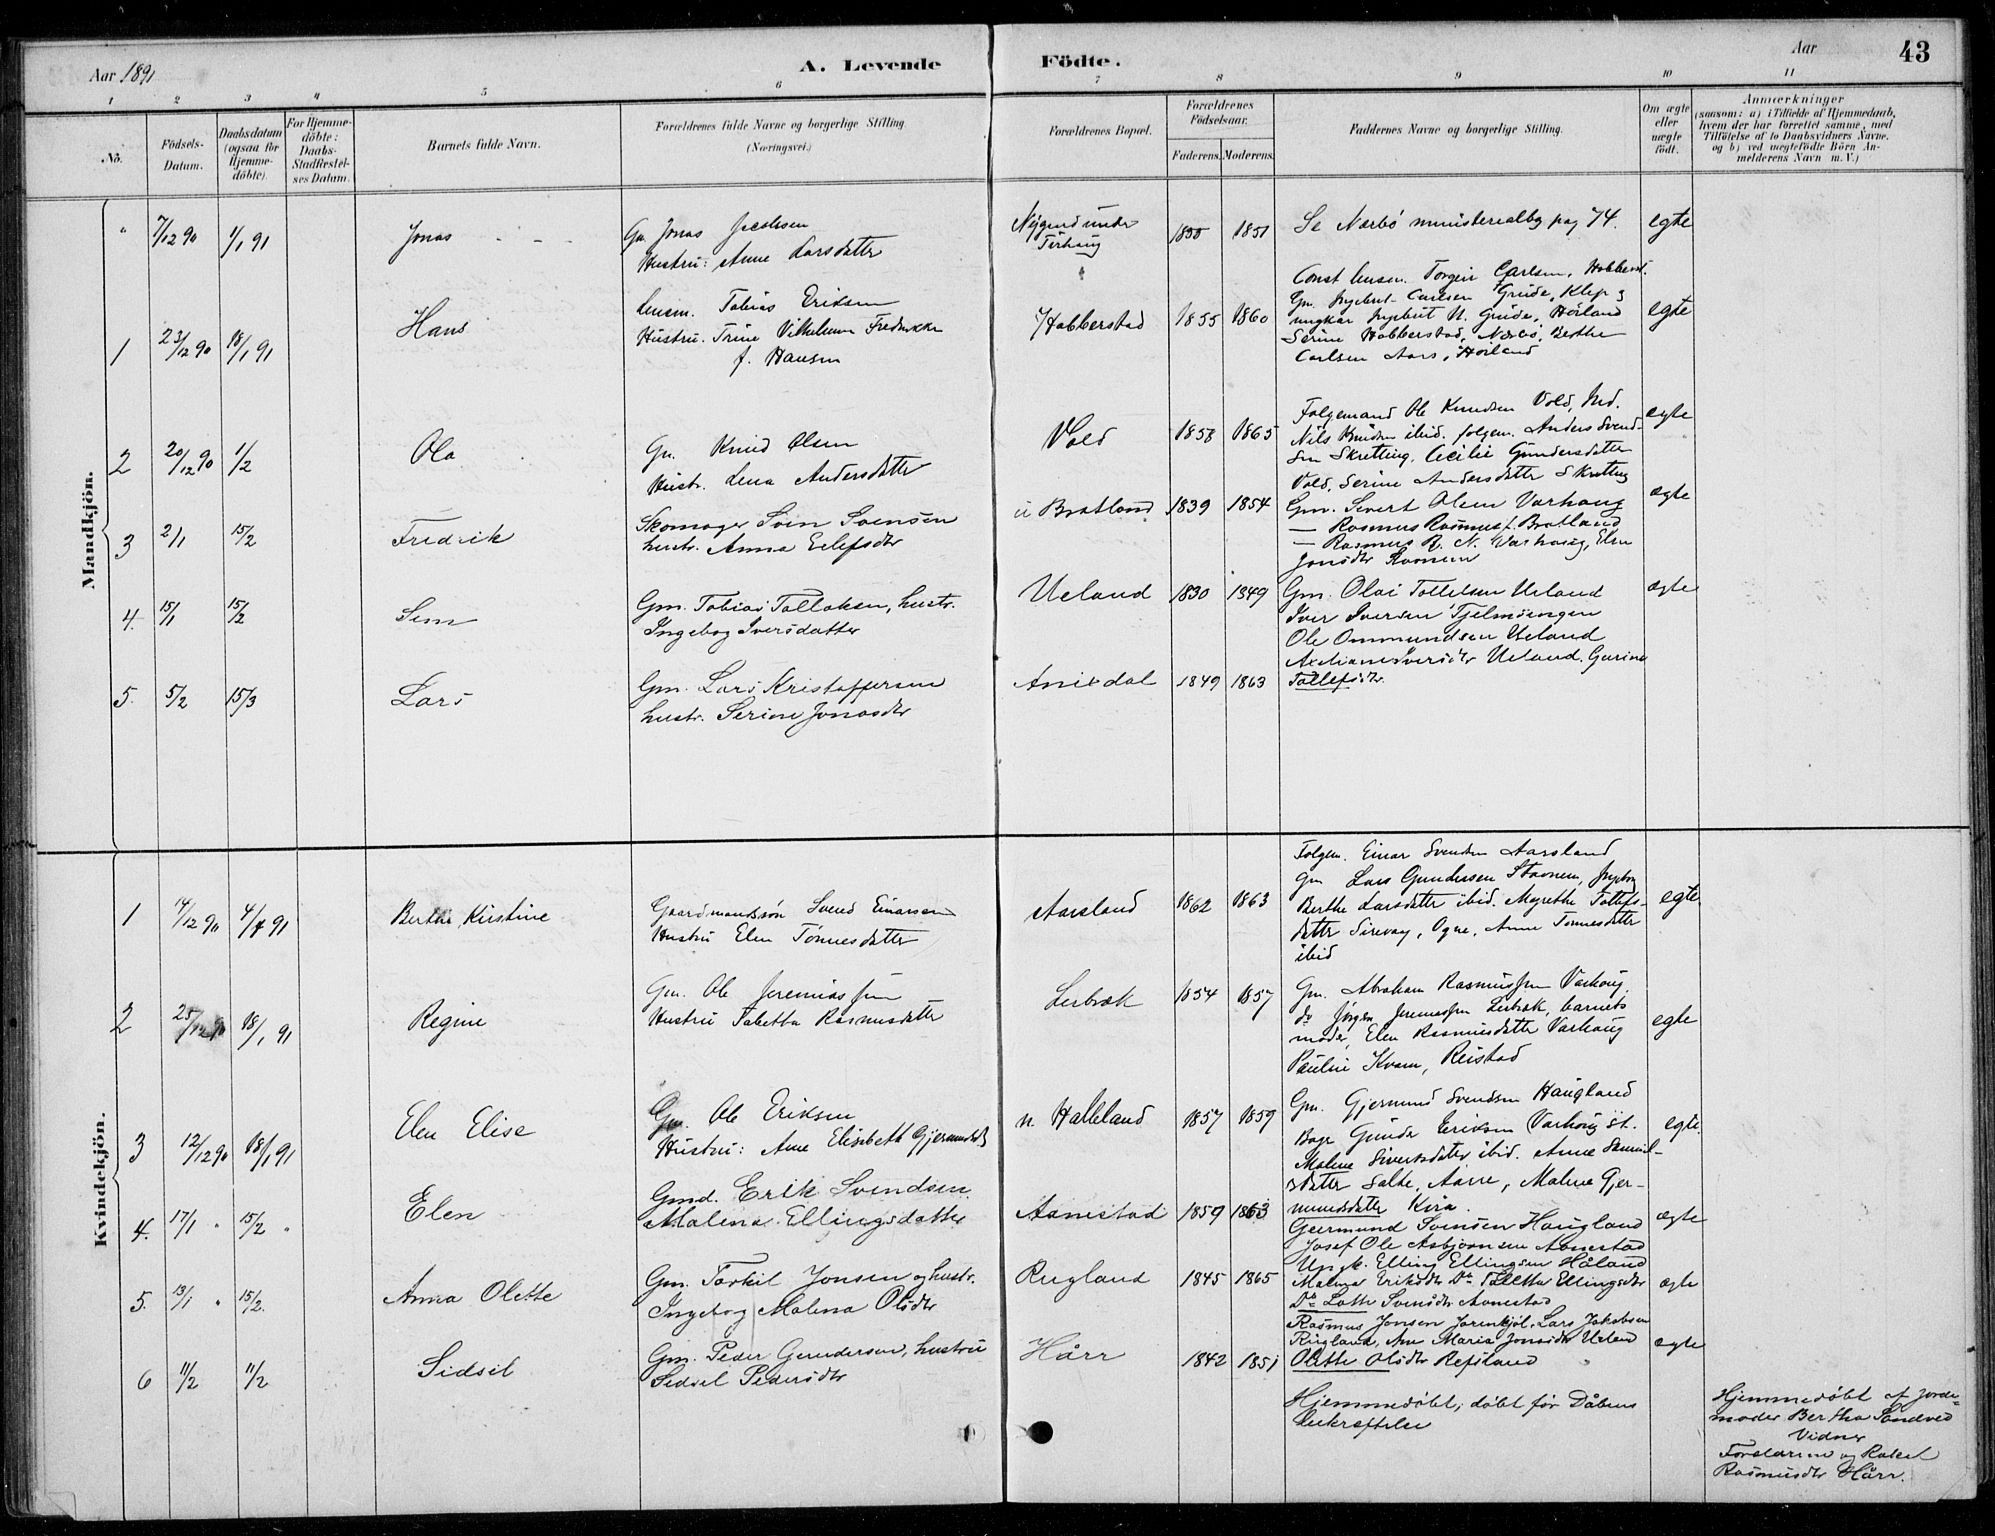 Aar 1891
A. Levende
Födte.
Aar
43
1 2 3 4 5 6 7 8 9 10 11
No.
Födsels-
Datum.
Daabsdatum
(ogsaa for
Hjemme-
döbte).
For Hjemme-
döbte:
Daabs-
Stadfæstel-
ses Datum.
Barnets fulde Navn.
Forældrenes fulde Navne og borgerlige Stilling
(Næringsvei.)
Forældrenes Bopæl.
Forældrenes
Födselsaar.
Faderens. Moderens.
Faddernes Navne og borgerlige Stilling.
Om ægte
eller
uægte
födt.
Anmærkninger
(saasom: a) i Tilfælde af Hjemmedaab,
hvem der har forrettet samme, med
Tilföielse af to Daabsvidners Navne.
og b) ved uægtefödte Börn An-
melderens Navn m. V.)
Mandkjön.
" 7/12 90 1/1 91 Jonas
Gm. Jonas Jacobsen
Hustru: Anne Larsdatter
Nygaard under
1855 1851
Se Nærbö ministerialbg pag 74.
egte
1 23/12 90 18/1 91 Hans
Lensm. Tobias Eriksen
Hustru. Trine Vilhelmine Fredrikke
f. Hansen
Habberstad 1855 1860
Const lensm. Torger Carlsen, Habberst.
Gm. Ingebret Carlsen Grude, Klep og
ungkar Ingebret N. Grude, Höiland
Serine Habberstad, Nærbö, Berthe
Carlsen Aars, Höiland
egte
2 20/12 90 1/2 Ola
Gm. Knud Olsen
Hustr. Lena Andersdatter
Vold 1858 1865
Folgemand Ole Knudsen Vold, Ind.
Nils Knudsen ibid. folgem. Anders Svend-
sen Skretting, Cecilie Gundersdatter
Vold, Serine Andersdatter Skretting
egte
3 2/1 15/2 Fredrik
Skomager Sven Svensen
hustr. Anna Eilefsdtr
Bratland 1839 1854
Gm. Sivert Olsen Varhaug
— Rasmus Rasmus. Bratland
— Rasmus R. N. Varhaug, Elen
Jonsdtr
ægte
4. 15/1 15/2 Sem
Gm. Tobias Tollaksen, hustr.
Ingeborg Iversdatter
Ueland 1830 1849
Gm. Olai Tollefsen Ueland
Iver Iversen Tjelmsengen
Ole Ommundsen Ueland
Axeliane Iversdtr Ueland. Gurine
Tollefsdtr.
ægte
5. 5/2 15/3 Lars
Gm. Lars Kristoffersen
hustr. Serine Jonasdtr
Anisdal 1849 1863
Kvindekjön.
1 14/12 90 4/1 91 Berthe Kirstine
Gaardmandssön Svend Einarsen
Hustru Elen Tönnesdatter
Aarsland 1862 1863
Folgem. Einar Svendsen Aarsland
Gm Lars Gundersen Stavnem, Ingeborg
Berthe Larsdatter ibid. Megrethe Tollefs-
datter Sirevaag, Ogne, Anne Tönnesdatter
ibid
egte
2 25/12 90 18/1 91 Regine
Gm. Ole Jeremiassen
Hustru Tabetha Rasmusdatter
Lerbræk 1854 1857
Gm. Abraham Rasmussen Varhoug,
do Jörgen Jeremiassen Lerbræk, barnets
moder, Elen Rasmusdatter Varhoug
Pauline Kvam, Reistad
egte
3 12/12 90 18/1 91 Elen Elise
Gm. Ole Eriksen
Hustru: Anne Elisabeth Gjermundsd
n. Halleland 1857 1859
Gm. Gjermund Svendsen Haugland
Bagr Gunder Eriksen Varhoug St.
Malene Sivertsdatter ibid. Anne Samuel-
sdatter Salte, Aarre, Malene Gjer-
mundsdatter Kira.
egte.
4. 17/1 " 15/2 " Elen
Gmd. Erik Svendsen
Malena Ellingsdatter
Aanestad 1859 1863
Geermund Svensen Haugland
Josef Ole Asbjörnsen Aanestad
Ungk. Elling Ellingsen Håland
Malena Eriksdtr Do Tabetha Ellingsdtr
Do Lotte Svensdtr Aanestad
ægte
5. 13/1 " 15/2. Anna Olette
Gm. Torkel Jonsen og hustr.
Ingeborg Malena Olsdtr
Rugland 1845 1865
Rasmus Jonsen Jorenkjöl. Lars Jakobsen
Rugland, Ane Maria Jonasdtr Ueland
Olette Olsdtr Refsland
ægte
6 11/2 11/2 Sidsel
Gm. Peder Gundersen, hustru
Sidsel Pedersdtr
Hårr 1842 1851
ægte
Hjemmedöbt; döbt för Dåbens
bekræftelse
Hjemmedöbt af Jorde-
moder Bertha Sandved
Vidner
Forældrene og Rakel
Rasmusdtr Hårr.